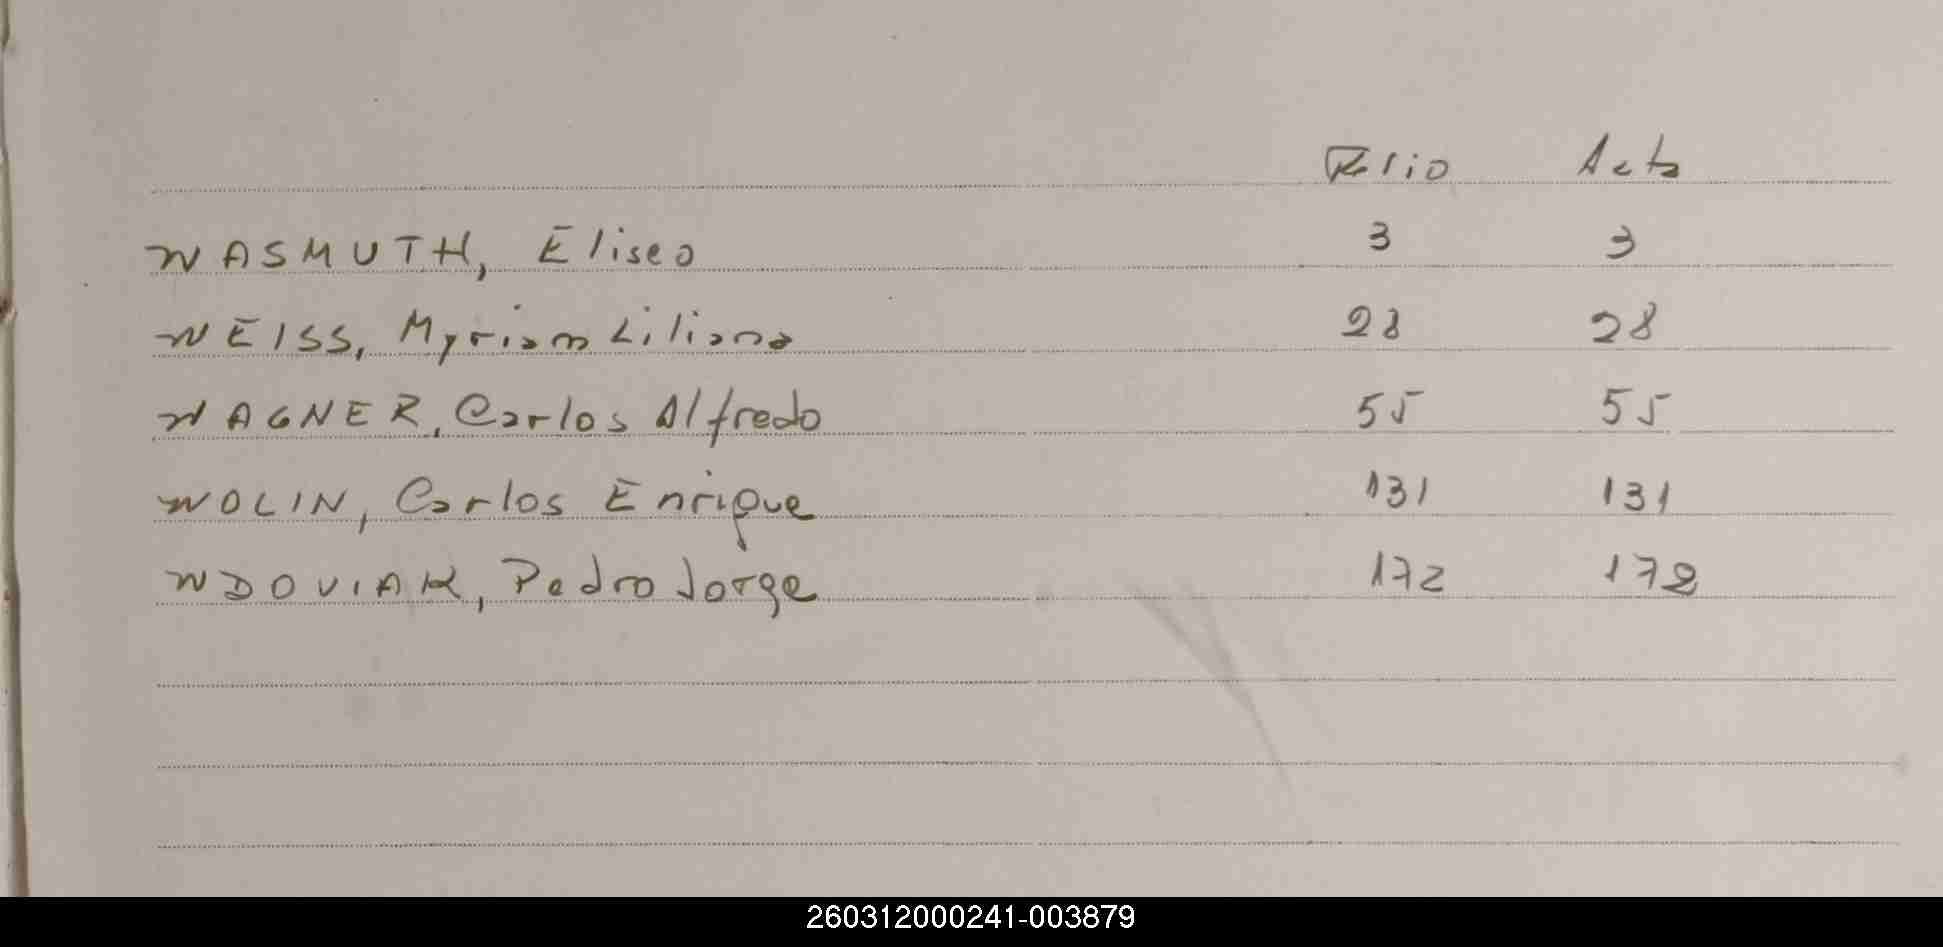 Folio Acta
WASMUTH, Eliseo 3 3
WEISS, Myriam Liliana 28 28
WAGNER, Carlos Alfredo 55 55
WOLIN, Carlos Enrique 131 131
WDOVIAK, Pedro Jorge 172 172
260312000241-003879